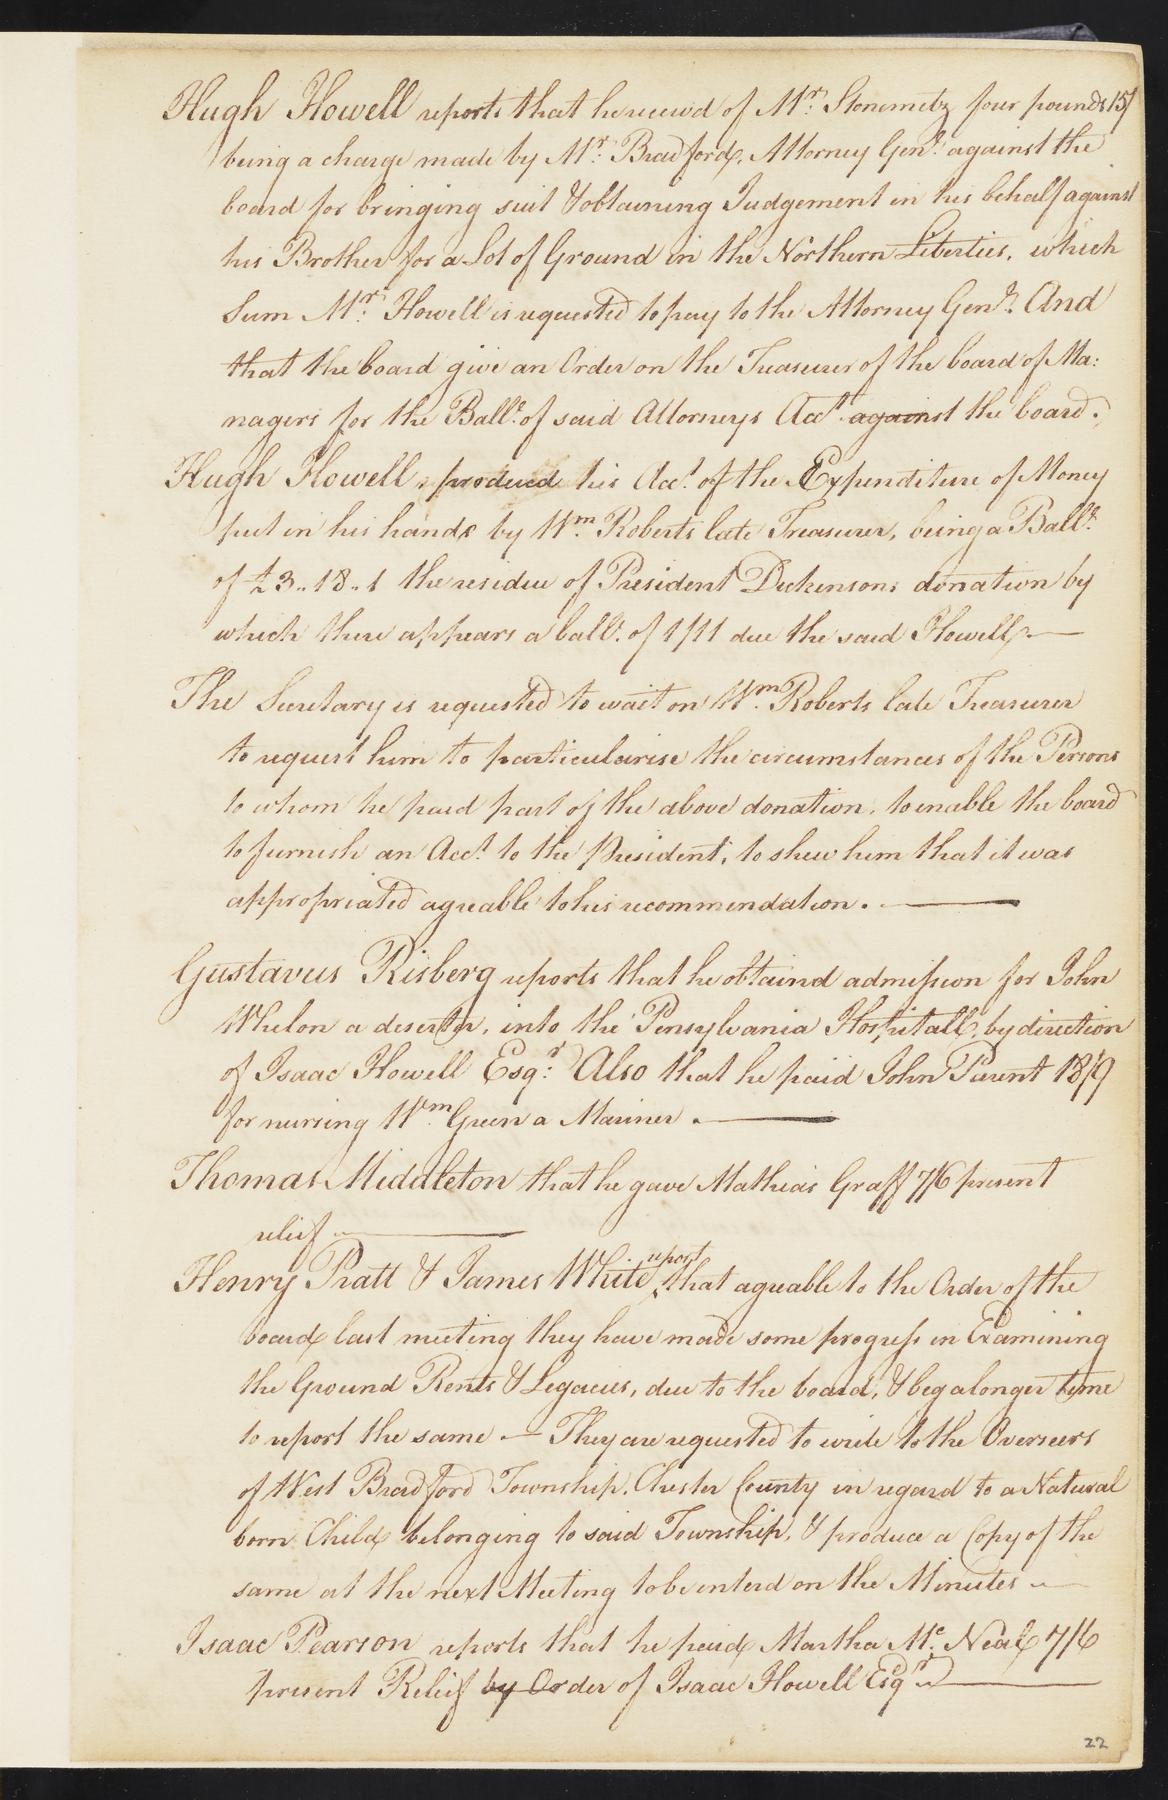 Hugh Howell reports that he receivd of Mr. Stonemetz four pounds 15/
being a charge made by Mr. Bradford, Attorney Genl. against the
board for bringing suit & obtaining Judgement in his behalf against
his Brother for a Lot of Ground in the Northern Liberties, which
Sum Mr. Howell is requested to pay to the Attorney Genl. And
that the board give an Order on the Treasurer of the board of Ma:
nagers for the Balle. of said Attorneys Acct. against the board.
Hugh Howell, produced his Acct. of the Expenditure of Money
put in his hands by Wm. Roberts late Treasurer, being a Balle.
of £3..18..1 the residue of President Dickensons donation by
which there appears a balle. of 1/11 due the said Howell.—
The Secretary is requested to wait on Wm. Roberts late Treasurer
to request him to particularise the circumstances of the Persons
to whom he paid part of the above donation, to enable the board
to furnish an Acct. to the President, to shew him that it was
appropriated agreable to his recommendation.—
Gustavus Risberg reports that he obtaind admission for John
Whelon a deserter, into the Pensylvania Hospitall, by direction
of Isaac Howell Esqr. Also that he paid John Parent 18/9
for nursing Wm. Green a Mariner.—
Thomas Middleton that he gave Mathias Graff 7/6 present
relief—
Henry Pratt & James White report that agreable to the Order of the
board last meeting they have made some progress in Examining
the Ground Rents & Legacies, due to the board, & beg a longer time
to report the same — They are requested to write to the Overseers
of West Bradford Township, Chester County in regard to a Natural
born Child belonging to said Township, & produce a Copy of the
same at the next Meeting to be enterd on the Minutes —
Isaac Pearson reports that he paid Martha Mc. Neal 7/6
present Relief by Order of Isaac Howell Esqr.—
22